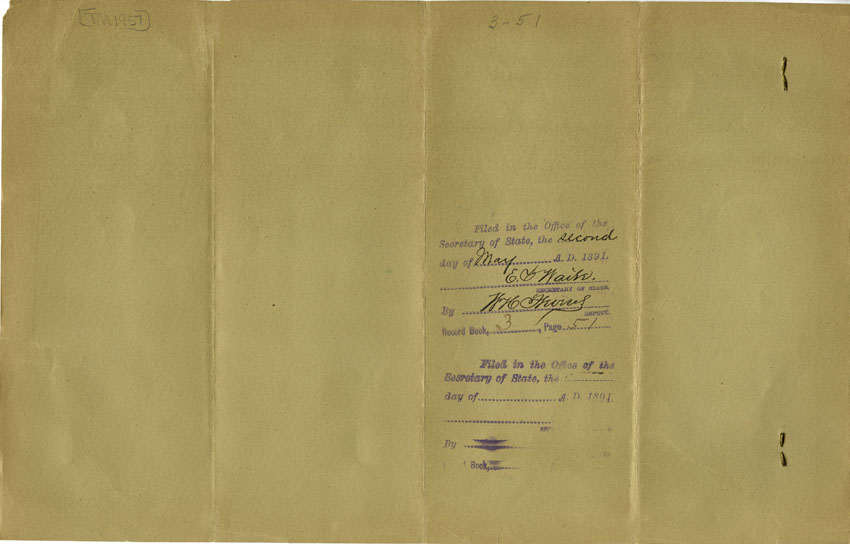 3-51
Filed in the Office of the
Secretary of State, the second
day of May A. D. 1891.
SECRETARY OF STATE.
By W. H.
DEPUTY.
Record Book, 3, Page 51
Filed in the Office of the
Secretary of State, the
day of A. D. 1891,
By
Book,